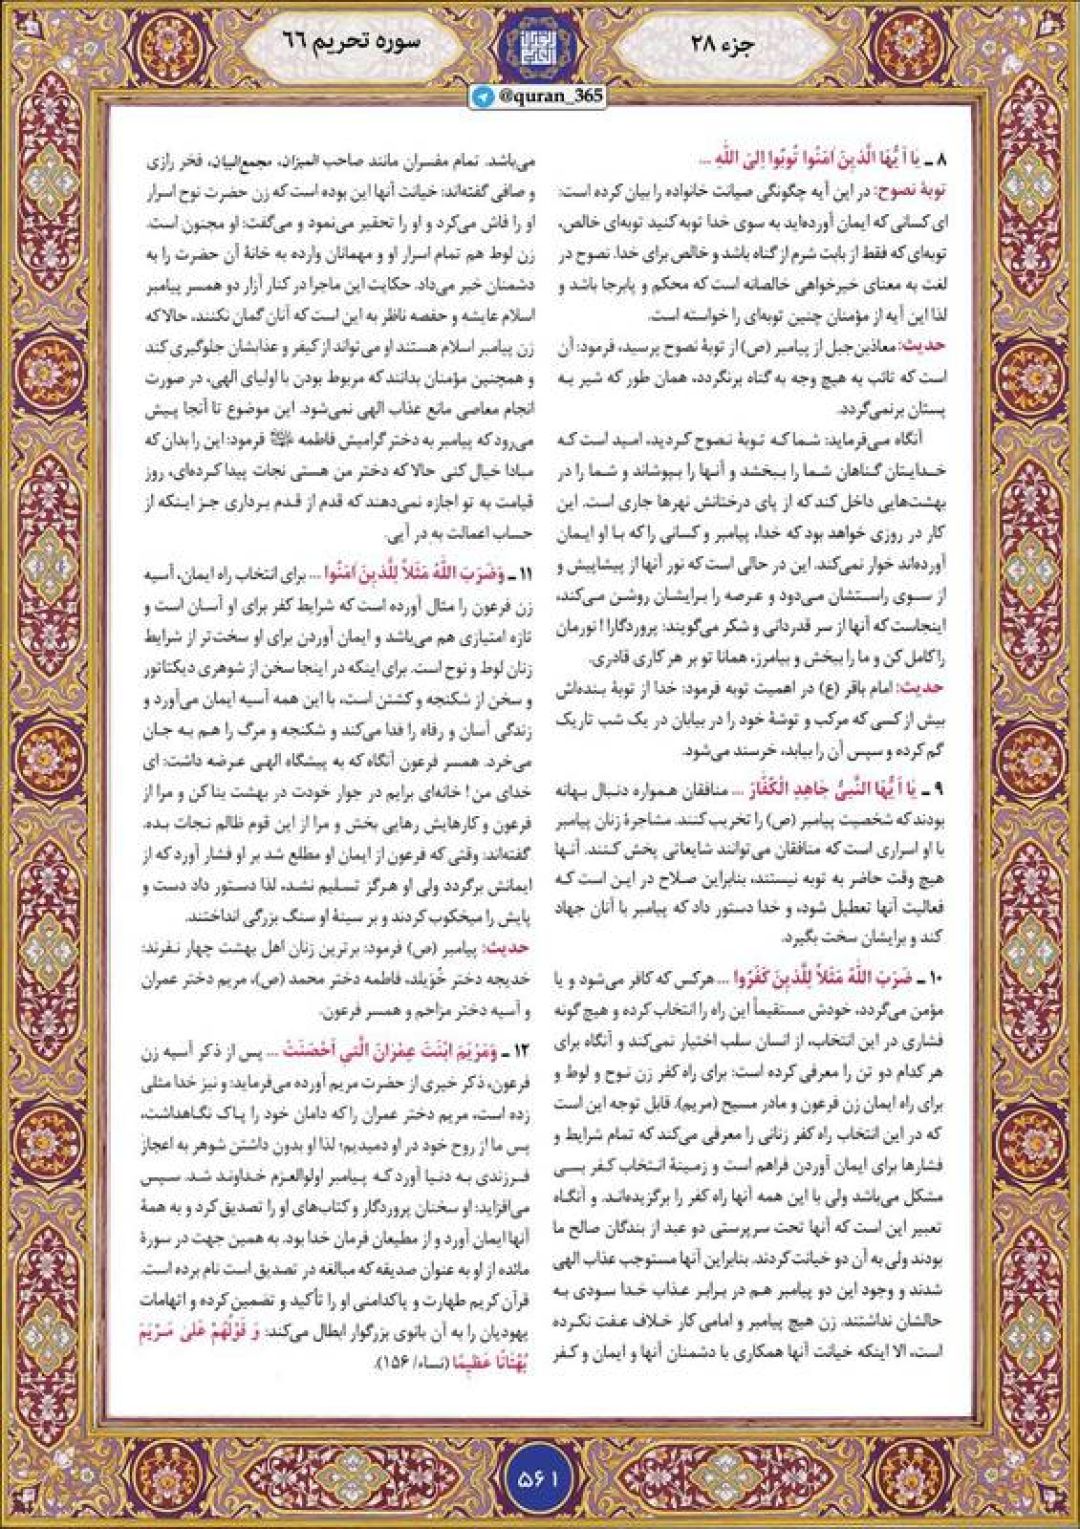 سوره تحریم ۶۶
جزء ۲۸
@quran_365
۸ ـ یَا أَیُّهَا الَّذِینَ آمَنُوا تُوبُوا إِلَی اللهِ ...
توبهٔ نصوح: در این آیه چگونگی صیانت خانواده را بیان کرده است:
ای کسانی که ایمان آورده‌اید به سوی خدا توبه کنید توبه‌ای خالص،
توبه‌ای که فقط از بابت شرم از گناه باشد و خالص برای خدا. نصوح در
لغت به معنای خیرخواهی خالصانه است که محکم و پابرجا باشد و
لذا این آیه از مؤمنان چنین توبه‌ای را خواسته است.
حدیث: معاذبن‌جبل از پیامبر (ص) از توبهٔ نصوح پرسید، فرمود: آن
است که تائب به هیچ وجه به گناه برنگردد، همان طور که شیر به
پستان برنمی‌گردد.
آنگاه می‌فرماید: شما که توبهٔ نصوح کردید، امید است که
خدایتان گناهان شما را ببخشد و آنها را بپوشاند و شما را در
بهشت‌هایی داخل کند که از پای درختانش نهرها جاری است. این
کار در روزی خواهد بود که خدا، پیامبر و کسانی را که با او ایمان
آورده‌اند خوار نمی‌کند. این در حالی است که نور آنها از پیشاپیش و
از سوی راستشان می‌دود و عرصه را برایشان روشن می‌کند،
اینجاست که آنها از سر قدردانی و شکر می‌گویند: پروردگارا! نورمان
را کامل کن و ما را ببخش و بیامرز، همانا تو بر هر کاری قادری.
حدیث: امام باقر (ع) در اهمیت توبه فرمود: خدا از توبهٔ بنده‌اش
بیش از کسی که مرکب و توشهٔ خود را در بیابان در یک شب تاریک
گم کرده و سپس آن را بیابد، خرسند می‌شود.
۹ ـ یَا أَیُّهَا النَّبِیُّ جَاهِدِ الْکُفَّارَ ... منافقان همواره دنبال بهانه
بودند که شخصیت پیامبر (ص) را تخریب کنند. مشاجرهٔ زنان پیامبر
با او اسراری است که منافقان می‌توانند شایعاتی پخش کنند. آنها
هیچ وقت حاضر به توبه نیستند، بنابراین صلاح در این است که
فعالیت آنها تعطیل شود، و خدا دستور داد که پیامبر با آنان جهاد
کند و برایشان سخت بگیرد.
۱۰ ـ ضَرَبَ اللهُ مَثَلاً لِلَّذِینَ کَفَرُوا ... هرکس که کافر می‌شود و یا
مؤمن می‌گردد، خودش مستقیماً این راه را انتخاب کرده و هیچ گونه
فشاری در این انتخاب، از انسان سلب اختیار نمی‌کند و آنگاه برای
هر کدام دو تن را معرفی کرده است: برای راه کفر زن نوح و لوط و
برای راه ایمان زن فرعون و مادر مسیح (مریم). قابل توجه این است
که در این انتخاب راه کفر زنانی را معرفی می‌کند که تمام شرایط و
فشارها برای ایمان آوردن فراهم است و زمینهٔ انتخاب کفر بسی
مشکل می‌باشد ولی با این همه آنها راه کفر را برگزیده‌اند. و آنگاه
تعبیر این است که آنها تحت سرپرستی دو عبد از بندگان صالح ما
بودند ولی به آن دو خیانت کردند. بنابراین آنها مستوجب عذاب الهی
شدند و وجود این دو پیامبر هم در برابر عذاب خدا سودی به
حالشان نداشتند. زن هیچ پیامبر و امامی کار خلاف عفت نکرده
است، الا اینکه خیانت آنها همکاری با دشمنان آنها و ایمان و کفر
می‌باشد. تمام مفسران مانند صاحب المیزان، مجمع‌البیان، فخر رازی
و صافی گفته‌اند: خیانت آنها این بوده است که زن حضرت نوح اسرار
او را فاش می‌کرد و او را تحقیر می‌نمود و می‌گفت: او مجنون است.
زن لوط هم تمام اسرار او و مهمانان وارده به خانهٔ آن حضرت را به
دشمنان خبر می‌داد. حکایت این ماجرا در کنار آزار دو همسر پیامبر
اسلام عایشه و حفصه ناظر به این است که آنان گمان نکنند، حالا که
زن پیامبر اسلام هستند او می‌تواند از کیفر و عذابشان جلوگیری کند
و همچنین مؤمنان بدانند که مربوط بودن با اولیای الهی، در صورت
انجام معاصی مانع عذاب الهی نمی‌شود. این موضوع تا آنجا پیش
می‌رود که پیامبر به دختر گرامیش فاطمه فرمود: این را بدان که
مبادا خیال کنی حالا که دختر من هستی نجات پیدا کرده‌ای، روز
قیامت به تو اجازه نمی‌دهند که قدم از قدم برداری جز اینکه از
حساب اعمالت به در آیی.
۱۱ ـ وَضَرَبَ اللهُ مَثَلاً لِلَّذِینَ آمَنُوا ... برای انتخاب راه ایمان، آسیه
زن فرعون را مثال آورده است که شرایط کفر برای او آسان است و
تازه امتیازی هم می‌باشد و ایمان آوردن برای او سخت‌تر از شرایط
زنان لوط و نوح است. برای اینکه در اینجا سخن از شوهری دیکتاتور
و سخن از شکنجه و کشتن است، با این همه آسیه ایمان می‌آورد و
زندگی آسان و رفاه را فدا می‌کند و شکنجه و مرگ را هم به جان
می‌خرد. همسر فرعون آنگاه که به پیشگاه الهی عرضه داشت: ای
خدای من! خانه‌ای برایم در جوار خودت در بهشت بنا کن و مرا از
فرعون و کارهایش رهایی بخش و مرا از این قوم ظالم نجات بده.
گفته‌اند: وقتی که فرعون از ایمان او مطلع شد بر او فشار آورد که از
ایمانش برگردد ولی او هرگز تسلیم نشد، لذا دستور داد دست و
پایش را میخکوب کردند و بر سینهٔ او سنگ بزرگی انداختند.
حدیث: پیامبر (ص) فرمود: برترین زنان اهل بهشت چهار نفرند:
خدیجه دختر خُوَیلد، فاطمه دختر محمد (ص)، مریم دختر عمران
و آسیه دختر مزاحم و همسر فرعون.
۱۲ ـ وَمَرْیَمَ ابْنَتَ عِمْرَانَ الَّتِی أَحْصَنَتْ ... پس از ذکر آسیه زن
فرعون، ذکر خیری از حضرت مریم آورده می‌فرماید: و نیز خدا مثلی
زده است، مریم دختر عمران را که دامان خود را پاک نگاهداشت،
پس ما از روح خود در او دمیدیم؛ لذا او بدون داشتن شوهر به اعجاز
فرزندی به دنیا آورد که پیامبر اولوالعزم خداوند شد. سپس
می‌افزاید: او سخنان پروردگار و کتاب‌های او را تصدیق کرد و به همهٔ
آنها ایمان آورد و از مطیعان فرمان خدا بود. به همین جهت در سورهٔ
مائده از او به عنوان صدیقه که مبالغه در تصدیق است نام برده است.
قرآن کریم طهارت و پاکدامنی او را تأکید و تضمین کرده و اتهامات
یهودیان را به آن بانوی بزرگوار ابطال می‌کند: وَ قَوْلِهِمْ عَلَی مَرْیَمَ
بُهْتَانًا عَظِیمًا (نساء/ ۱۵۶).
۵۶۱